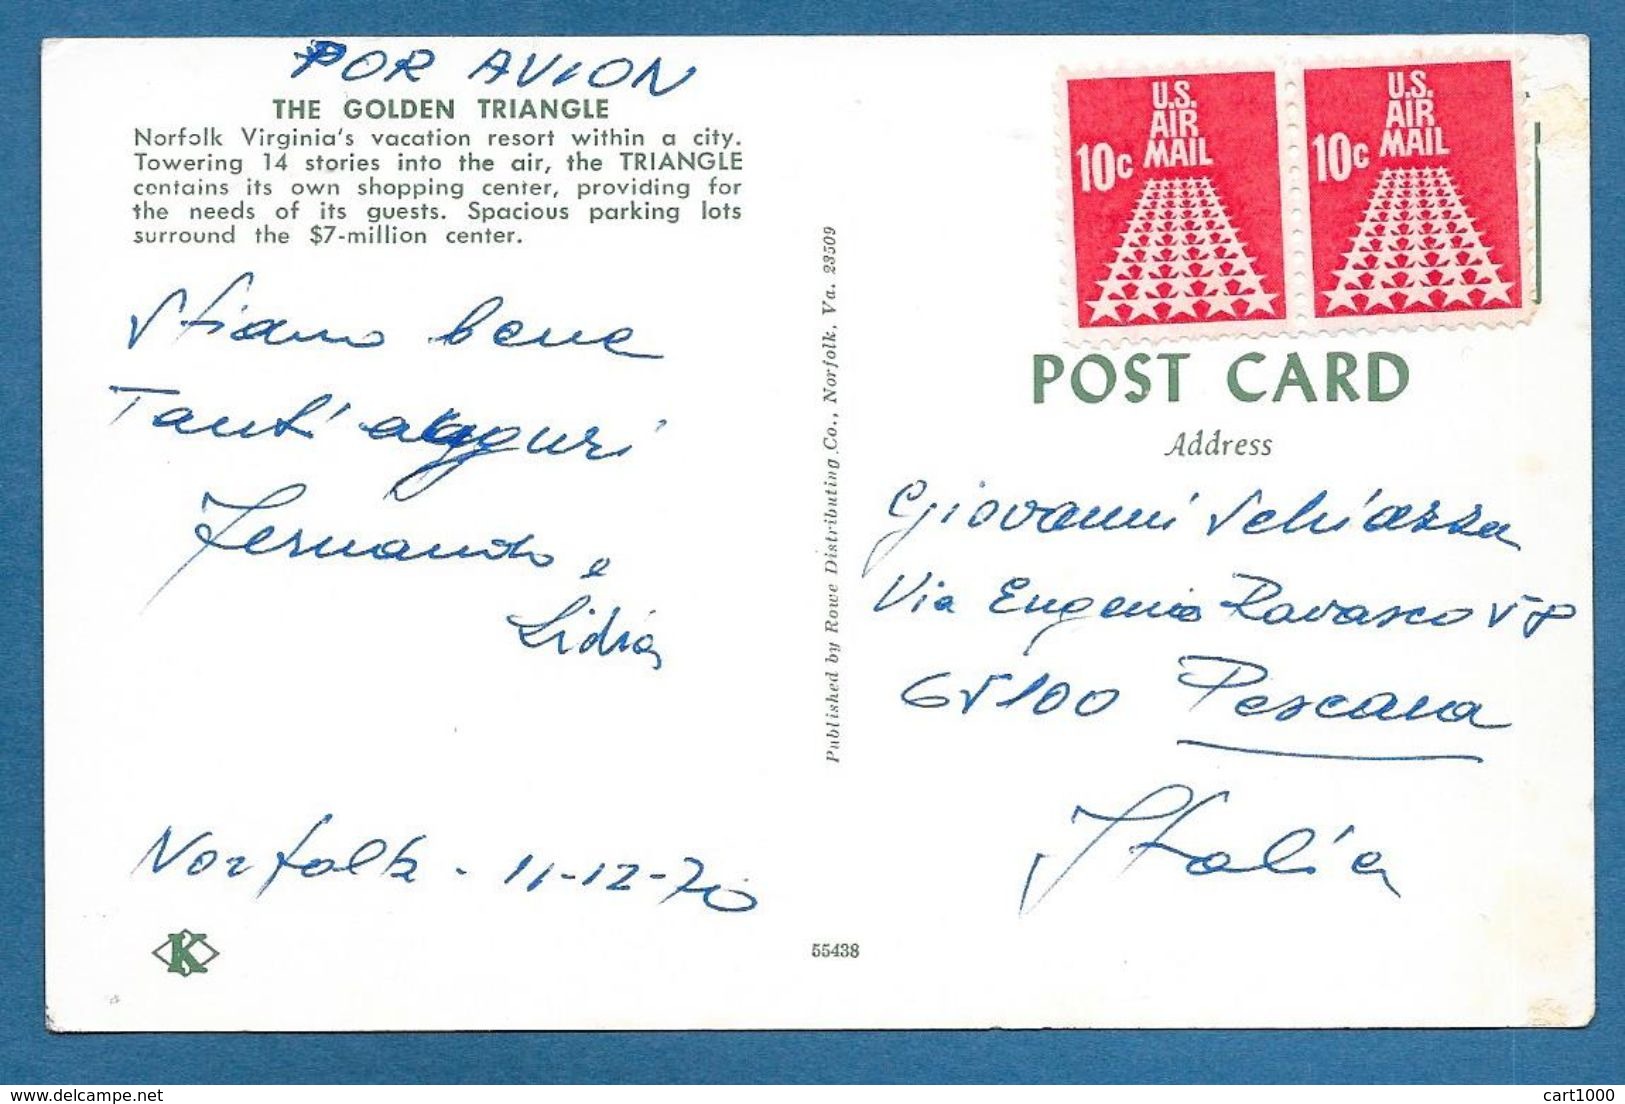 POR AVION
THE GOLDEN TRIANGLE
Norfolk Virginia's vacation resort within a city.
Towering 14 stories into the air, the TRIANGLE
contains its own shopping center, providing for
the needs of its guests. Spacious parking lots
surround the $7-million center.
Stiamo bene
Tanti auguri
Fernando e
Lidia
Norfolk - 11-12-70
K
Published by Rowe Distributing Co., Norfolk, Va. 23509
55438
U.S.
AIR
MAIL
10c
U.S.
AIR
MAIL
10c
POST CARD
Address
Giovanni Schiazza
Via Eugenia Ravasco
65100 Pescara
Italia
cart1000
www.delcampe.net